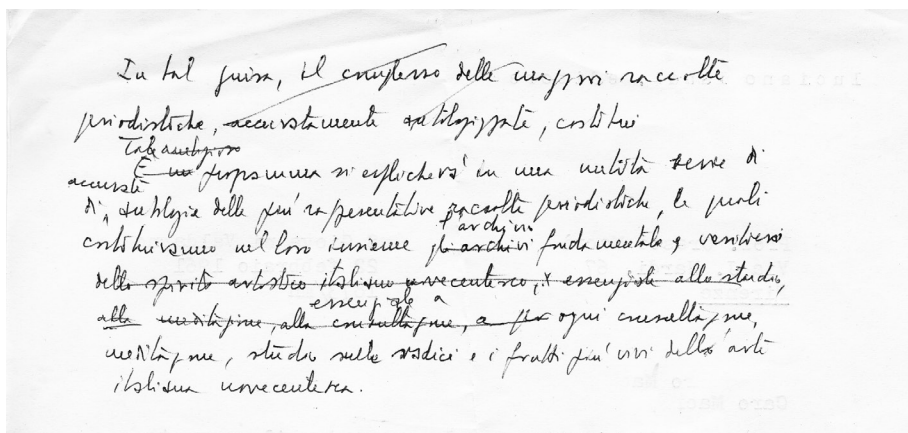 In tal guisa, il complesso delle maggiori raccolte
periodistiche, accuratamente antologizzate, costitui
Tale ambizioso
E un programma si esplicherà in una nutrita serie di
accurate
di antologie delle più rappresentative raccolte periodistiche, le quali
l'archivio
costituiranno nel loro insieme gli archivi fondamentale e
dello spirito artistico italiano novecentesco, essenziale allo studio,
essenziale a
alla meditazione, alla consultazione, e per ogni consultazione,
meditazione, studio sulle radici e i frutti più vivi dell'arte
italiana novecentesca.